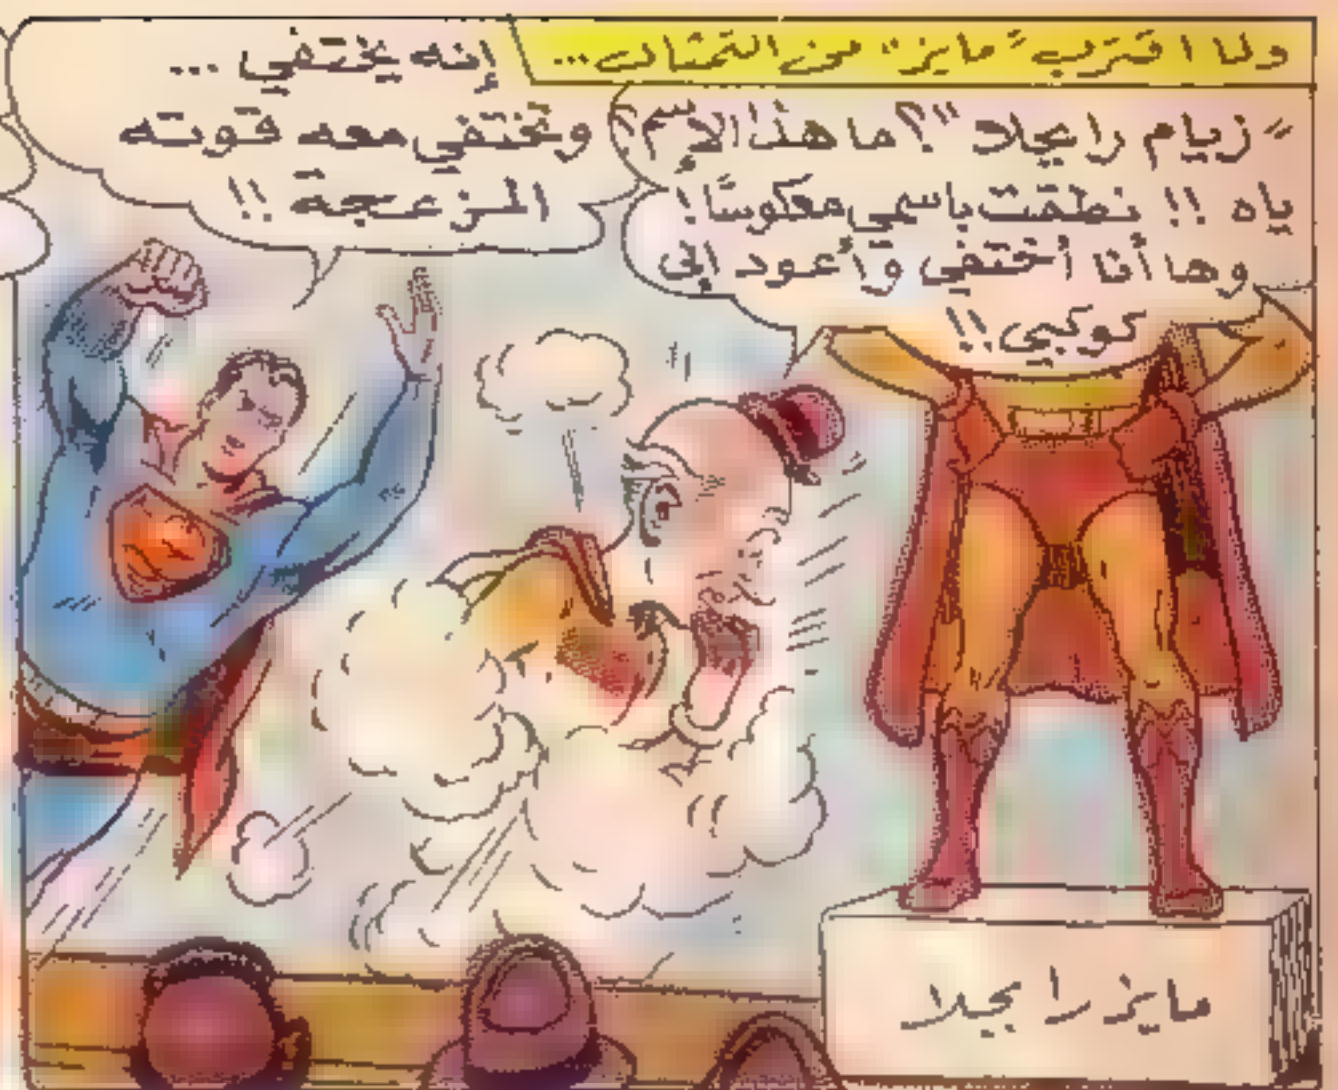 ولما اقترب "مايز" من التمثال...
"زيام رايجلا"؟ ما هذا الإسم؟
ياه !! نطقت باسمي معكوسًا!
وها أنا أختفي وأعود إلى
كوكبي!!
إنه يختفي ...
وتختفي معه قوته
المزعجة !!
مايز رايجلا